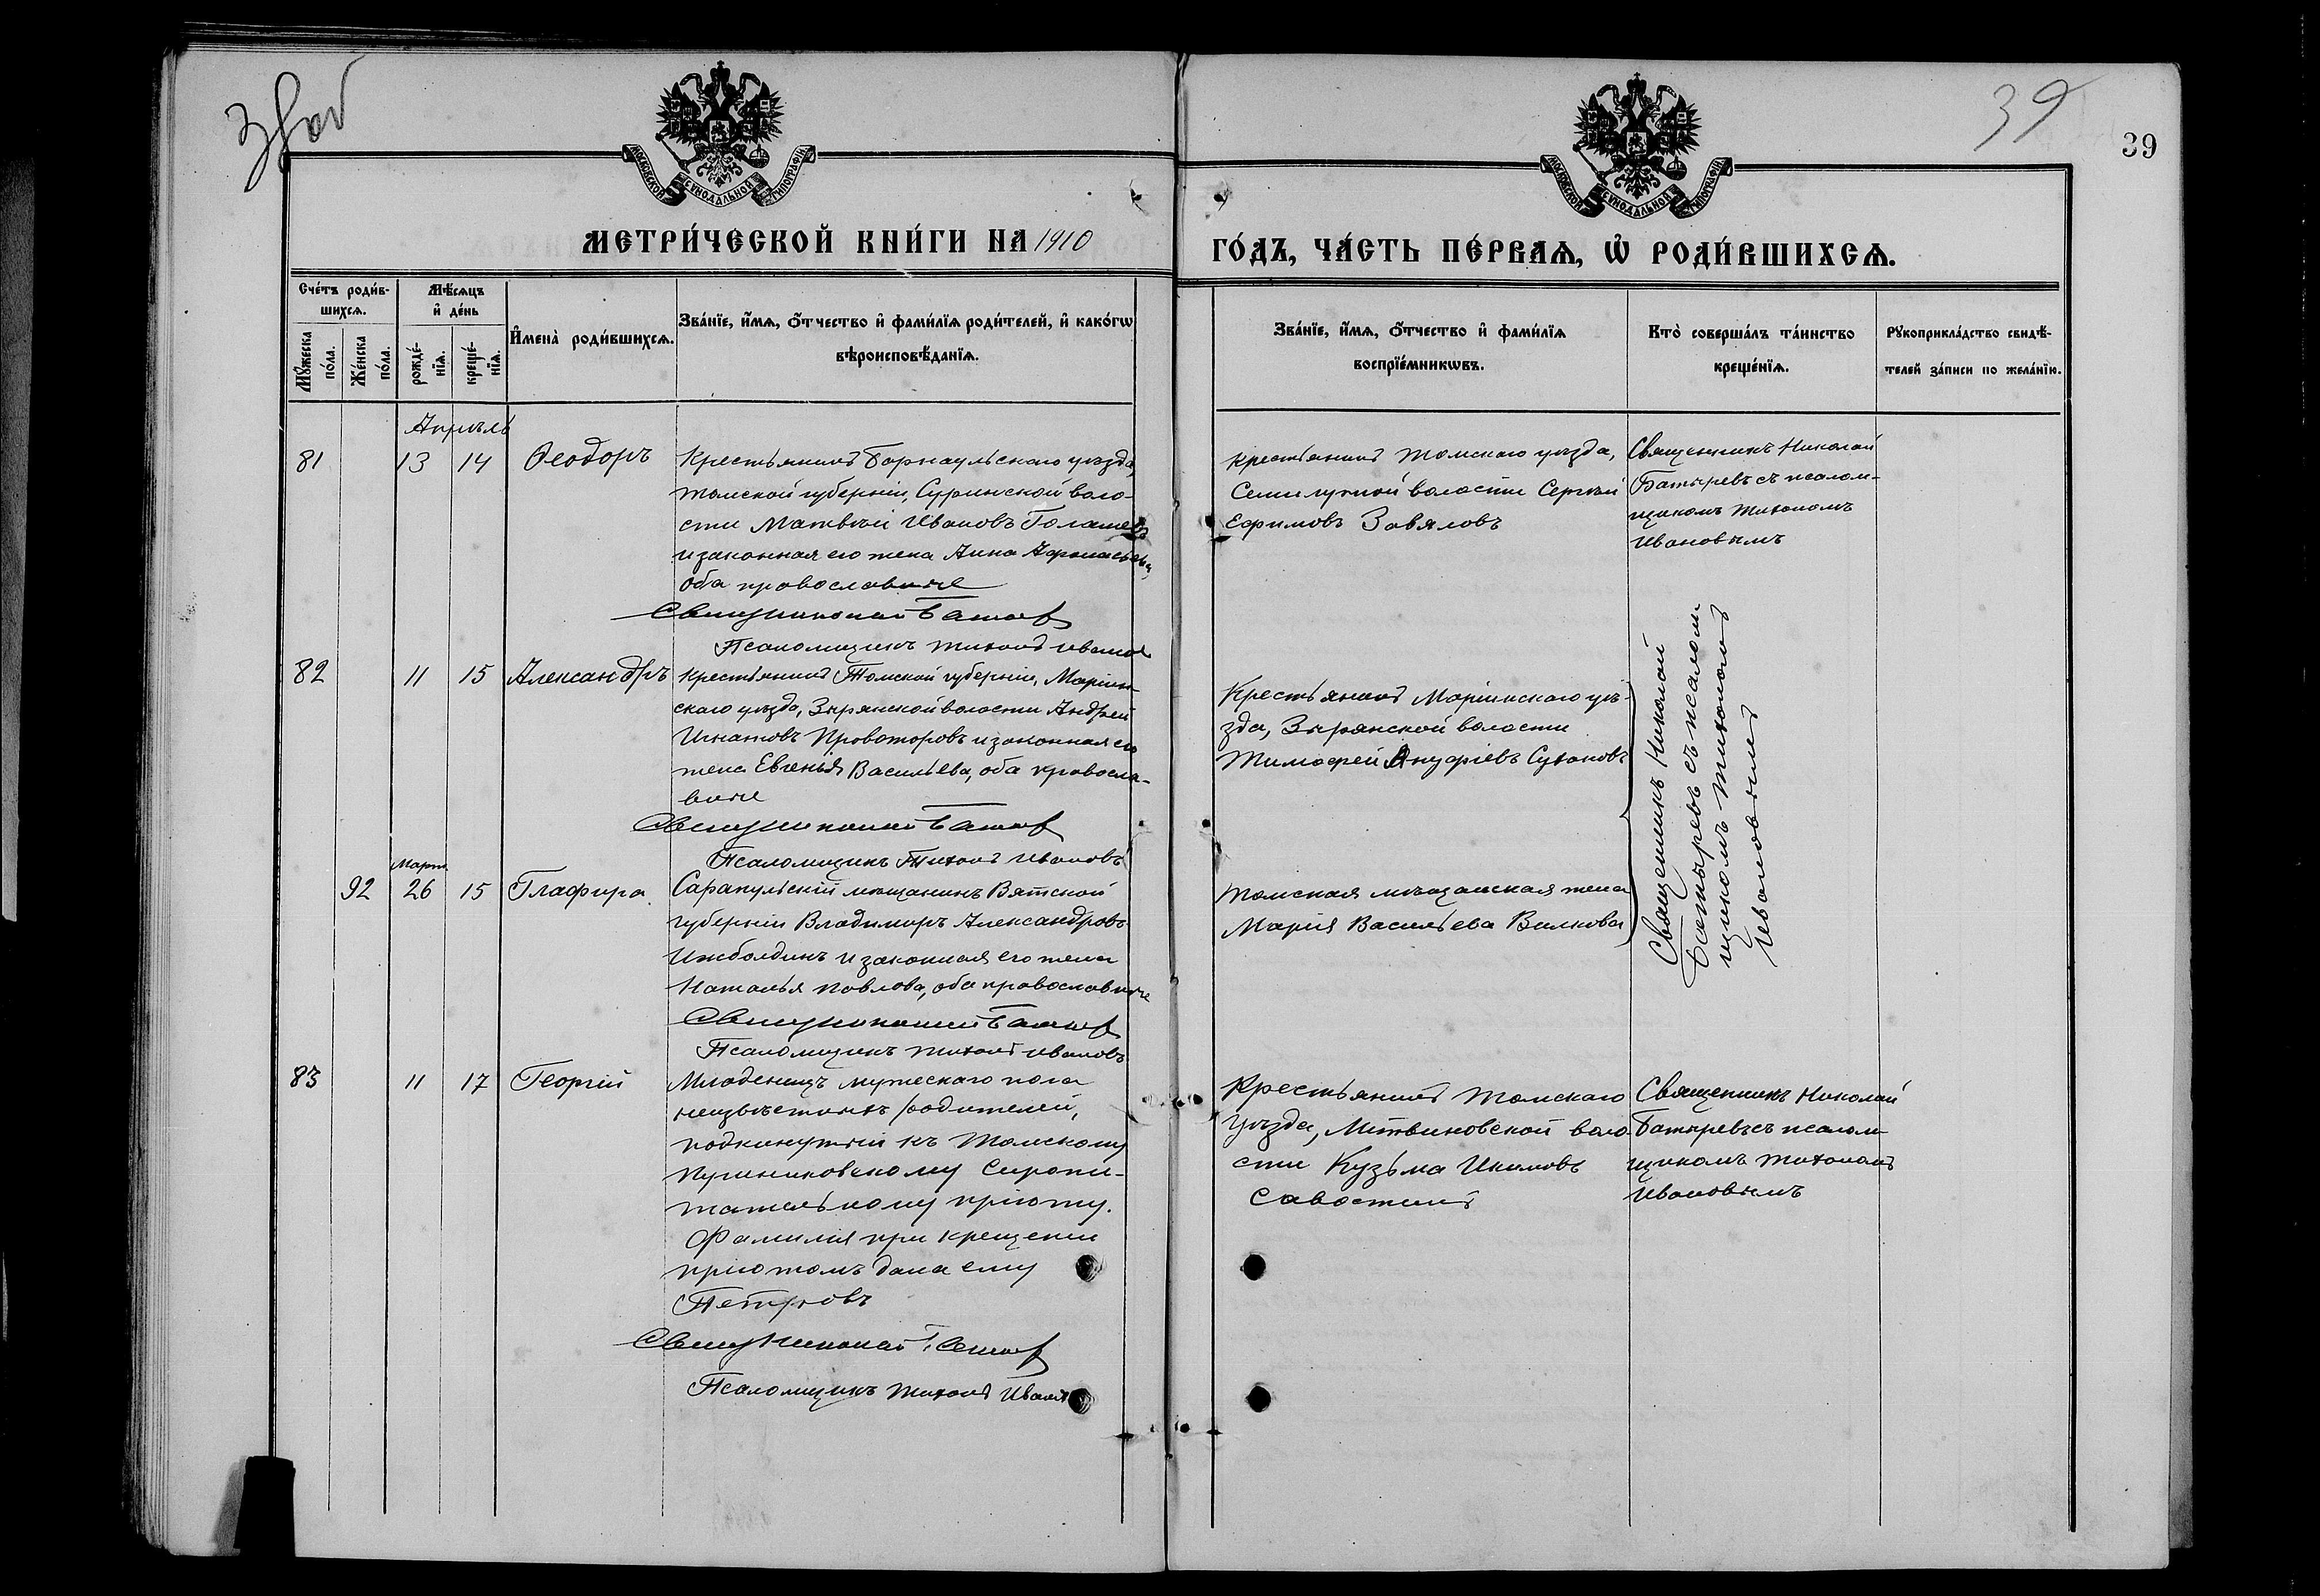 39
39
МОСКОВСКОЙ СѴНОДАЛЬНОЙ ТИПОГРАФІИ
МОСКОВСКОЙ СѴНОДАЛЬНОЙ ТИПОГРАФІИ
МЕТРИ́ЧЕСКОЙ КНИ́ГИ НА 1910
ГО́ДЪ, ЧА́СТЬ ПЕ́РВАѦ, Ѡ҆ РОДИ́ВШИХСѦ.
Сче́тъ роди́в-
шихсѧ.
Мꙋ́жеска по́ла.
Же́нска по́ла.
Мѣ́сѧцъ
и҆ де́нь
рожде́-
нїѧ.
креще́-
нїѧ.
И҆мена̀ роди́вшихсѧ.
Зва́нїе, и҆́мѧ, ѻ҆́тчество и҆ фами́лїѧ роди́телей, и҆ како́гѡ
вѣроисповѣ́данїѧ.
Зва́нїе, и҆́мѧ, ѻ҆́тчество и҆ фами́лїѧ
воспрїе́мникѡвъ.
Кто̀ соверша́лъ та́инство
креще́нїѧ.
Рꙋкоприкла́дство свидѣ́-
телей за́писи по жела́нїю.
Апрѣль
81 13 14 Ѳеодоръ
Крестьянинъ Барнаульскаго уѣзда,
Томской губерніи, Суринской воло-
сти Матвѣй Ивановъ
и законная его жена Анна Афанасьева,
оба православные
Свящ. Николай
Псаломщикъ Тихонъ Ивановъ
Крестьянинъ Томскаго уѣзда,
Семилужной волости Сергѣй
Ефимовъ Завяловъ
Священникъ Николай
Батыревъ съ псалом-
щикомъ Тихономъ
Ивановымъ
82 11 15 Александръ
Крестьянинъ Томской губерніи, Маріин-
скаго уѣзда, Зырянской волости Андрей
Игнатовъ Провоторовъ и законная его
жена Евгенья Васильева, оба правосла-
вные
Свящ. Николай
Псаломщикъ Тихонъ Ивановъ
Крестьянинъ Маріинскаго уѣ-
зда, Зырянской волости
Тимофей Ануфріевъ Сухановъ
Священникъ Николай
Батыревъ съ псалом-
щикомъ Тихономъ
Ивановымъ
Мартъ
92 26 15 Глафира
Сарапульскій мѣщанинъ Вятской
губерніи Владимиръ Александровъ
Ижболдинъ и законная его жена
Наталья Павлова, оба православные
Свящ. Николай
Псаломщикъ Тихонъ Ивановъ
Томская мѣщанская жена
Марія Васильева Вилкова
83 11 17 Георгій
Младенецъ мужескаго пола
неизвѣстныхъ родителей,
подкинутый къ Томскому
Пушниковскому Сиропи-
тательному пріюту.
Фамилія при крещеніи
пріютомъ дана ему
Петровъ
Свящ. Николай
Псаломщикъ Тихонъ Ивановъ
Крестьянинъ Томскаго
уѣзда, Митвиновской воло-
сти Кузьма
Савостинъ
Священникъ Николай
Батыревъ съ псалом-
щикомъ Тихономъ
Ивановымъ